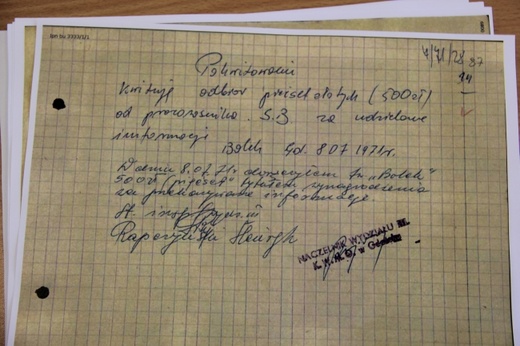 IPN BU 2333/1/1
Pokwitowanie
Kwituję odbiór pięćset złotych (500 zł)
od pracownika S.B. za udzielone
informacje
Bolek Gd. 8.07 1971r.
Dnia 8.07.71r. doręczyłem tw. „Bolek"
500 zł (pięćset) tytułem wynagrodzenia
za przekazywane informacje
St. insp.
Rapczyński Henryk
NACZELNIK WYDZIAŁU III
K.W.M.O. w Gdańsku